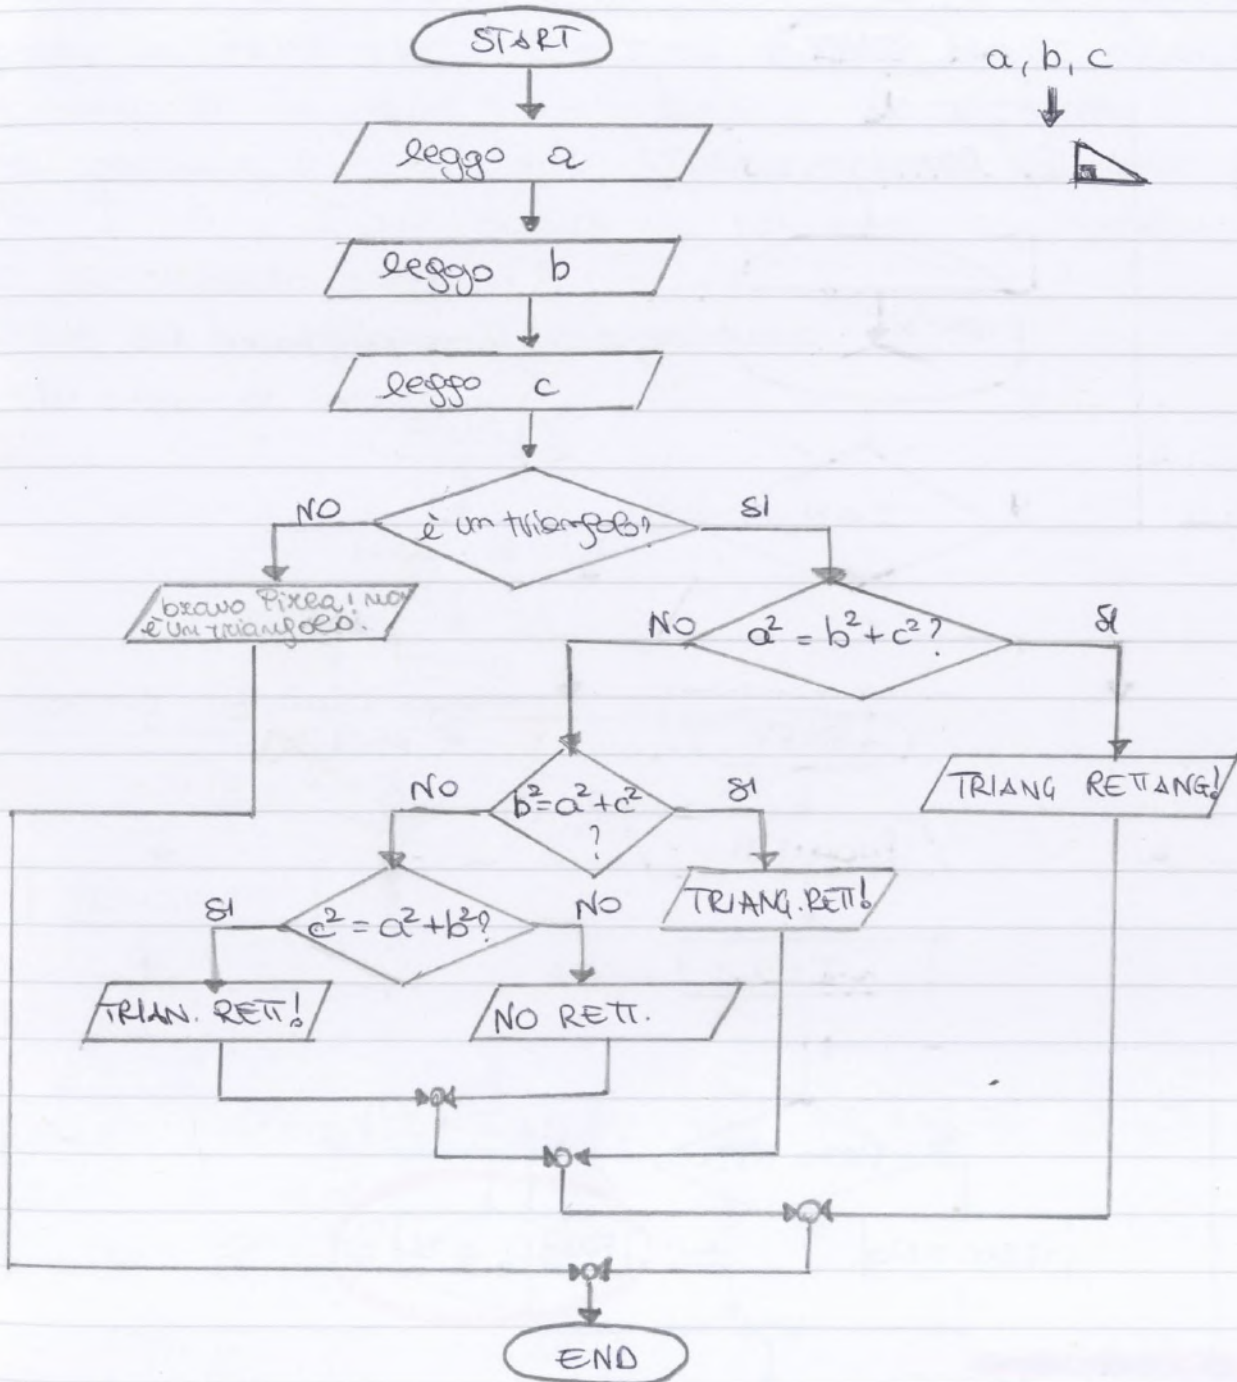 START
a, b, c
leggo a
leggo b
leggo c
NO
è un triangolo?
SI
bravo Pirla! non
è un triangolo.
NO
a² = b² + c²?
SI
TRIANG RETTANG!
NO
b² = a² + c²
?
SI
TRIANG. RETT!
SI
c² = a² + b²?
NO
TRIAN. RETT!
NO RETT.
END